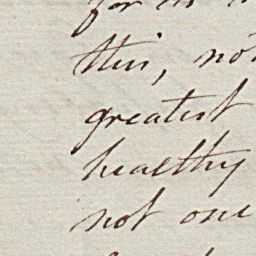 for
this, not
greatest
healthy
not one